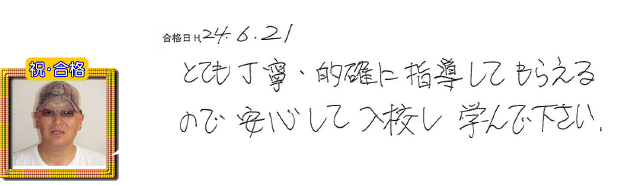 合格日 H,24.6.21
祝・合格
とても丁寧・的確に指導してもらえる
ので安心して入校し学んで下さい.